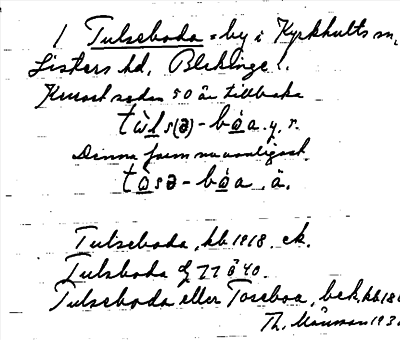 / Tulseboda = by i Kyrkhults sn,
Listers hd, Blekinge l.
Knost sedan 50 år tillbaka
tùls(ə)-bǫ̀a. y. r.
Denna form nu vanligast.
tǫ̀sə-bǫ̀a. ä.
Tulseboda, kb 1918. ek.
Tulsboda
Tulseboda eller Toseboa, bek. kb 18
Th. Månsson 193